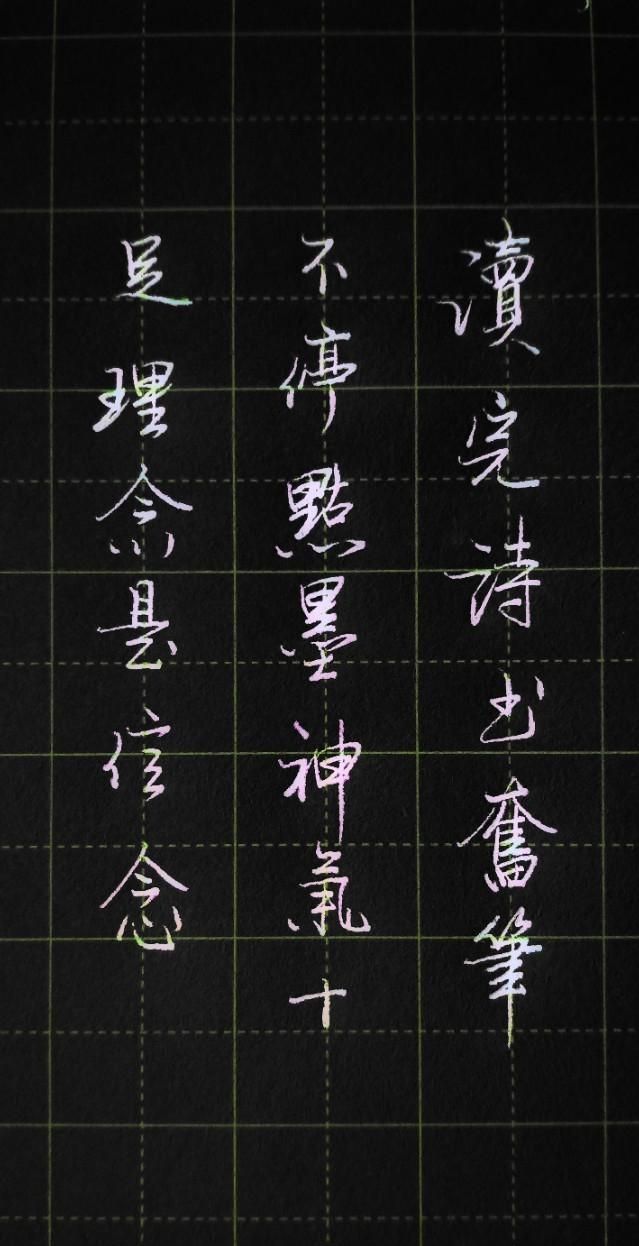 讀完詩书奮筆
不停點墨神氣十
足理念是信念